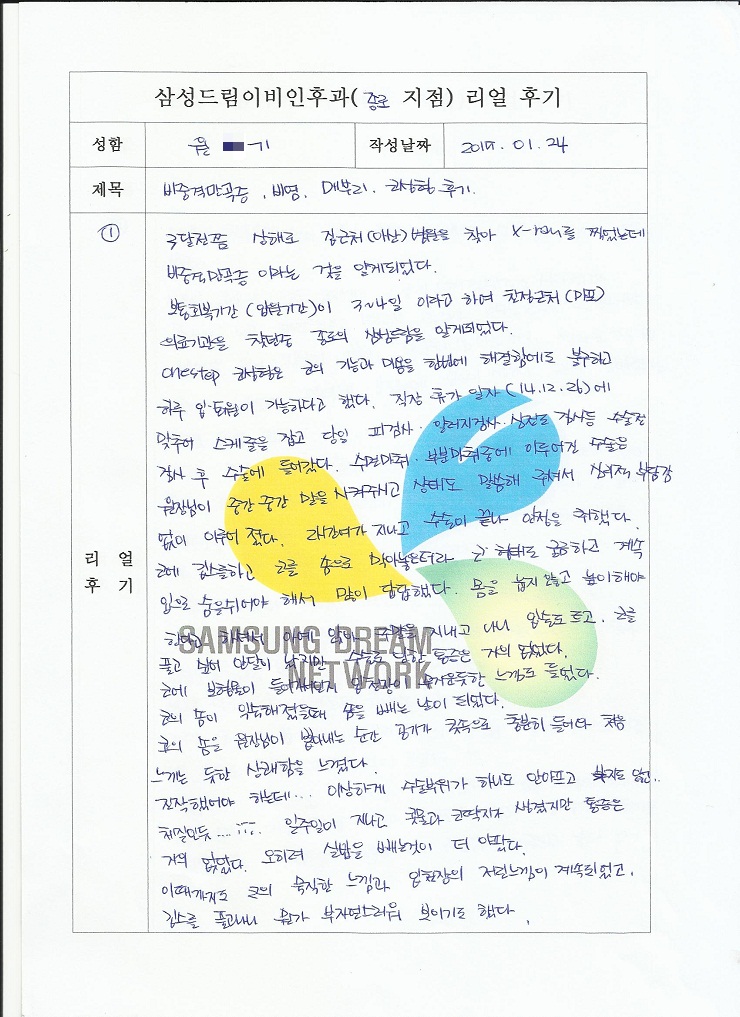 삼성드림이비인후과( 종로 지점) 리얼 후기
성함 윤 기 작성날짜 2015. 01. 24
제목 비중격만곡증, 비염, 매부리, 코성형 후기.
①
리 얼
후 기
두달전쯤 상해로 집근처(아산) 병원을 찾아 X-ray를 찍었는데
비중격만곡증 이라는 것을 알게되었다.
보통회복기간 (입원기간)이 3~4일 이라고 하여 친정근처 (마포)
의료기관을 찾던중 종로의 삼성드림을 알게되었다.
onestop 코성형은 코의 기능과 미용을 한번에 해결함에도 불구하고
하루 입·퇴원이 가능하다고 했다. 직장 휴가 일자 (14.12.26)에
맞추어 스케줄을 잡고 당일 피검사·알러지검사·심전도 검사등 수술전
검사 후 수술에 들어갔다. 수면마취·부분마취중에 이루어진 수술은
원장님이 중간중간 말을 시켜주시고 상태도 말씀해 주셔서 심리적 부담감
없이 이루어 졌다. 2시간여가 지나고 수술이 끝나 안정을 취했다.
코에 깁스를하고 코를 솜으로 막아놓은터라 계속
입으로 숨을쉬어야 해서 많이 답답했다. 몸을 눕지 않고 높이해야
한다고 해서 아예 앉아 주말을 지내고 나니 입술도 트고, 코를
풀고 싶어 안달이 났지만 수술로 인한 통증은 거의 없었다.
코에 보형물이 들어가서인지 앞천장이 무거운듯한 느낌도 들었다.
코의 솜이 익숙해졌을때 솜을 빼는 날이 되었다.
코의 솜을 원장님이 뽑아내는 순간 공기가 콧속으로 충분히 들어와 처음
느끼는 듯한 상쾌함을 느꼈다.
진작했어야 하는데... 이상하게 수술부위가 하나도 안아프고 붓지도 않는..
체질인듯.... 일주일이 지나고 콧물과 코딱지가 생겼지만 통증은
거의 없었다. 오히려 실밥을 빼는것이 더 아팠다.
이때까지도 코의 묵직한 느낌과 앞천장의 저린느낌이 계속되었고,
깁스를 풀고나니 뭔가 부자연스러워 보이기도 했다.
SAMSUNG DREAM
NETWORK